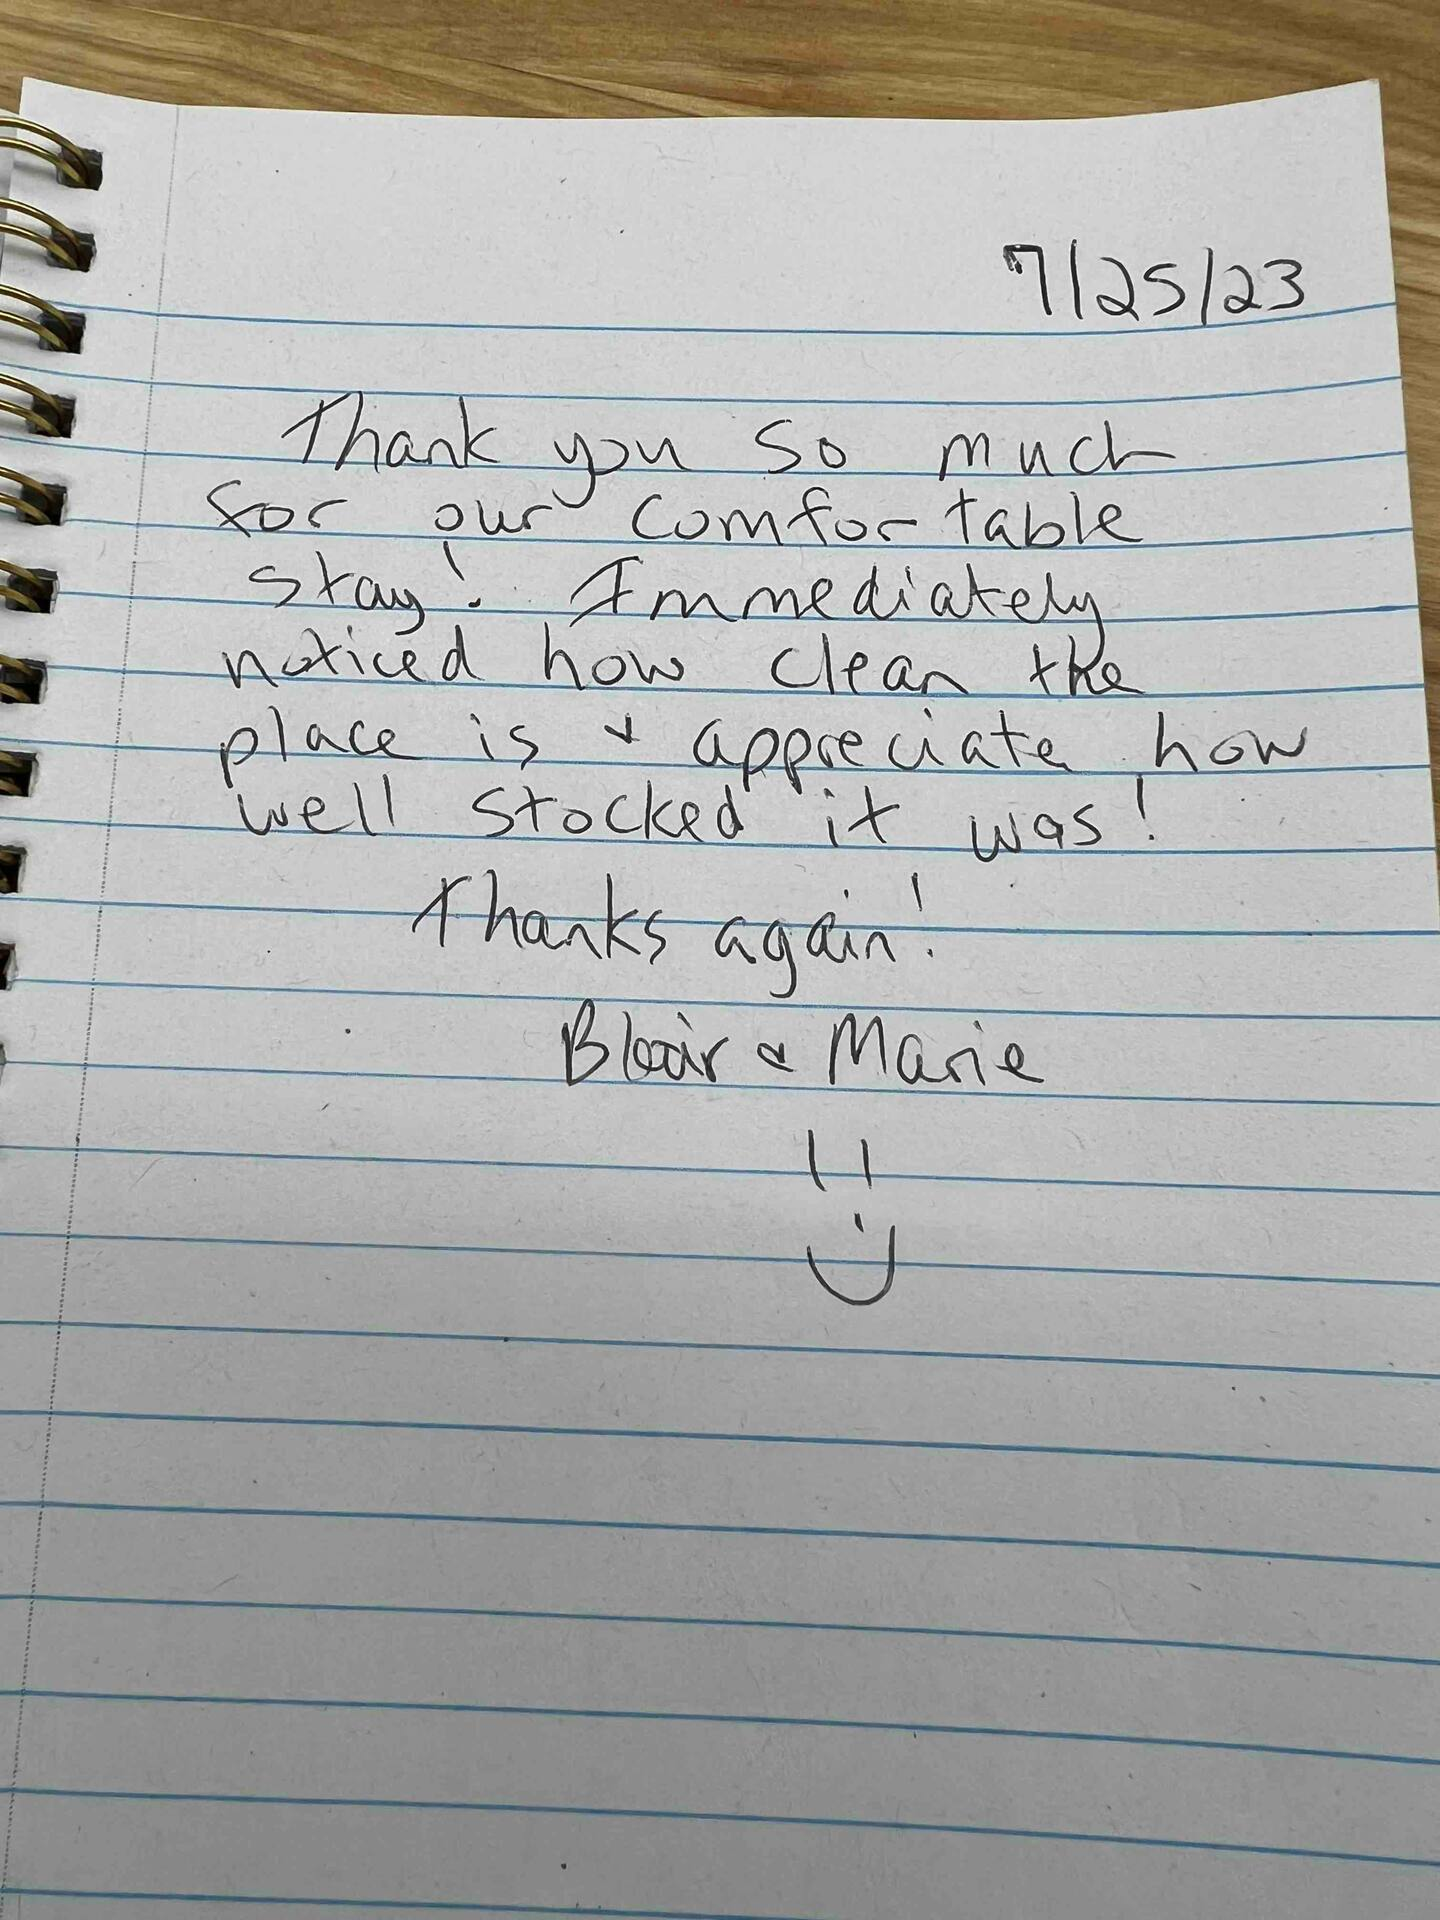 7/25/23
Thank you so much
for our comfortable
stay! Immediately
noticed how clean the
place is & appreciate how
well stocked it was!
Thanks again!
Blair & Marie